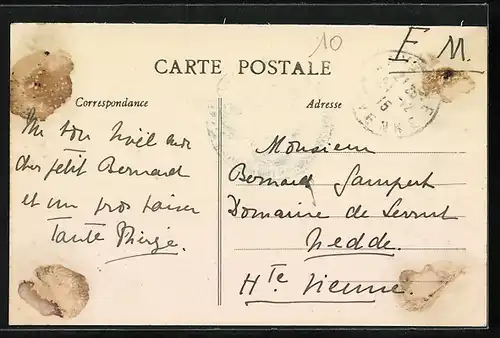 10
F. M.
CARTE POSTALE
Correspondance
Adresse
Un bon Noël mon
cher petit Bernard
et un gros baiser
Tante
Monsieur
Bernard Gampert
Domaine de
Nedde.
Hte Vienne.